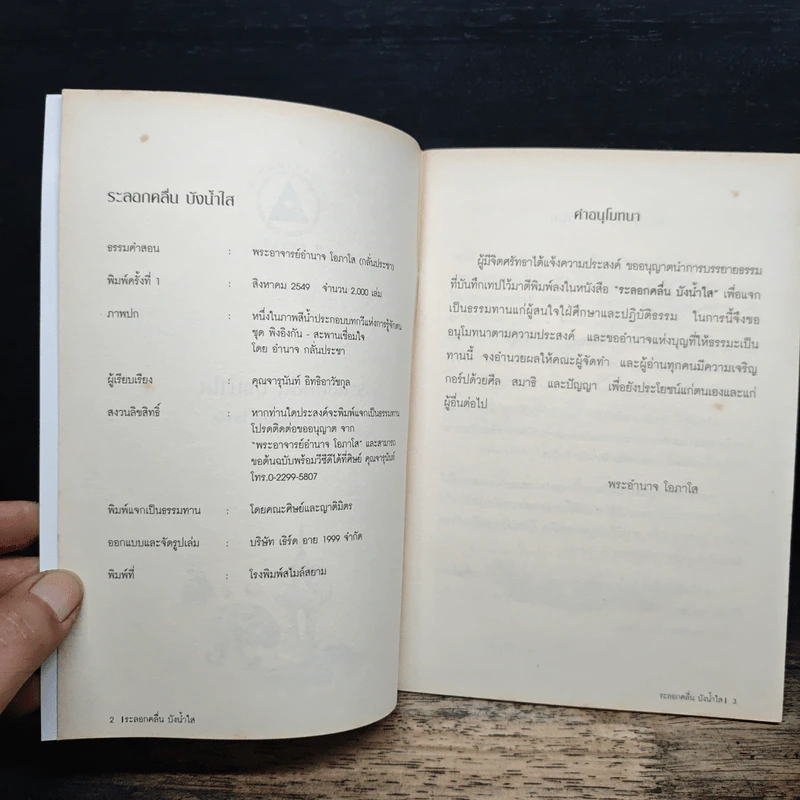 ระลอกคลื่น บังน้ำใส
ธรรมคำสอน : พระอาจารย์อำนาจ โอภาโส (กลั่นประชา)
พิมพ์ครั้งที่ 1 : สิงหาคม 2549 จำนวน 2,000 เล่ม
ภาพปก : หนึ่งในภาพสีน้ำประกอบบทกวีแห่งการรู้จักตน
ชุด พิงอิงกัน - สะพานเชื่อมใจ
โดย อำนาจ กลั่นประชา
ผู้เรียบเรียง : คุณจารุนันท์ อิทธิอาวัชกุล
สงวนลิขสิทธิ์ : หากท่านใดประสงค์จะพิมพ์แจกเป็นธรรมทาน
โปรดติดต่อขออนุญาต จาก
"พระอาจารย์อำนาจ โอภาโส" และสามารถ
ขอต้นฉบับพร้อมวีซีดีได้ที่ศิษย์ คุณจารุนันท์
โทร.0-2299-5807
พิมพ์แจกเป็นธรรมทาน : โดยคณะศิษย์และญาติมิตร
ออกแบบและจัดรูปเล่ม : บริษัท เธิร์ด อาย 1999 จำกัด
พิมพ์ที่ : โรงพิมพ์สไมล์สยาม
2 |ระลอกคลื่น บังน้ำใส
คำอนุโมทนา
ผู้มีจิตศรัทธาได้แจ้งความประสงค์ ขออนุญาตนำการบรรยายธรรม
ที่บันทึกเทปไว้มาตีพิมพ์ลงในหนังสือ "ระลอกคลื่น บังน้ำใส" เพื่อแจก
เป็นธรรมทานแก่ผู้สนใจใฝ่ศึกษาและปฏิบัติธรรม ในการนี้จึงขอ
อนุโมทนาตามความประสงค์ และขออำนาจแห่งบุญที่ให้ธรรมะเป็น
ทานนี้ จงอำนวยผลให้คณะผู้จัดทำ และผู้อ่านทุกคนมีความเจริญ
กอร์ปด้วยศีล สมาธิ และปัญญา เพื่อยังประโยชน์แก่ตนเองและแก่
ผู้อื่นต่อไป
พระอำนาจ โอภาโส
ระลอกคลื่น บังน้ำใส| 3